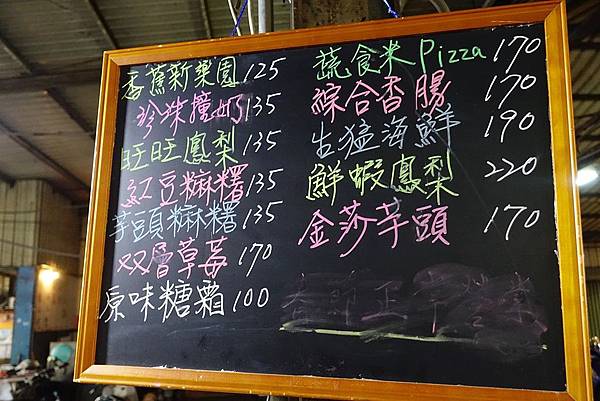 香蕉新樂園125
珍珠撞奶135
旺旺鳳梨135
紅豆麻糬135
芋頭麻糬135
双層草莓170
原味糖霜100
蔬食米Pizza170
綜合香腸170
生猛海鮮190
鮮蝦鳳梨220
金莎芋頭170